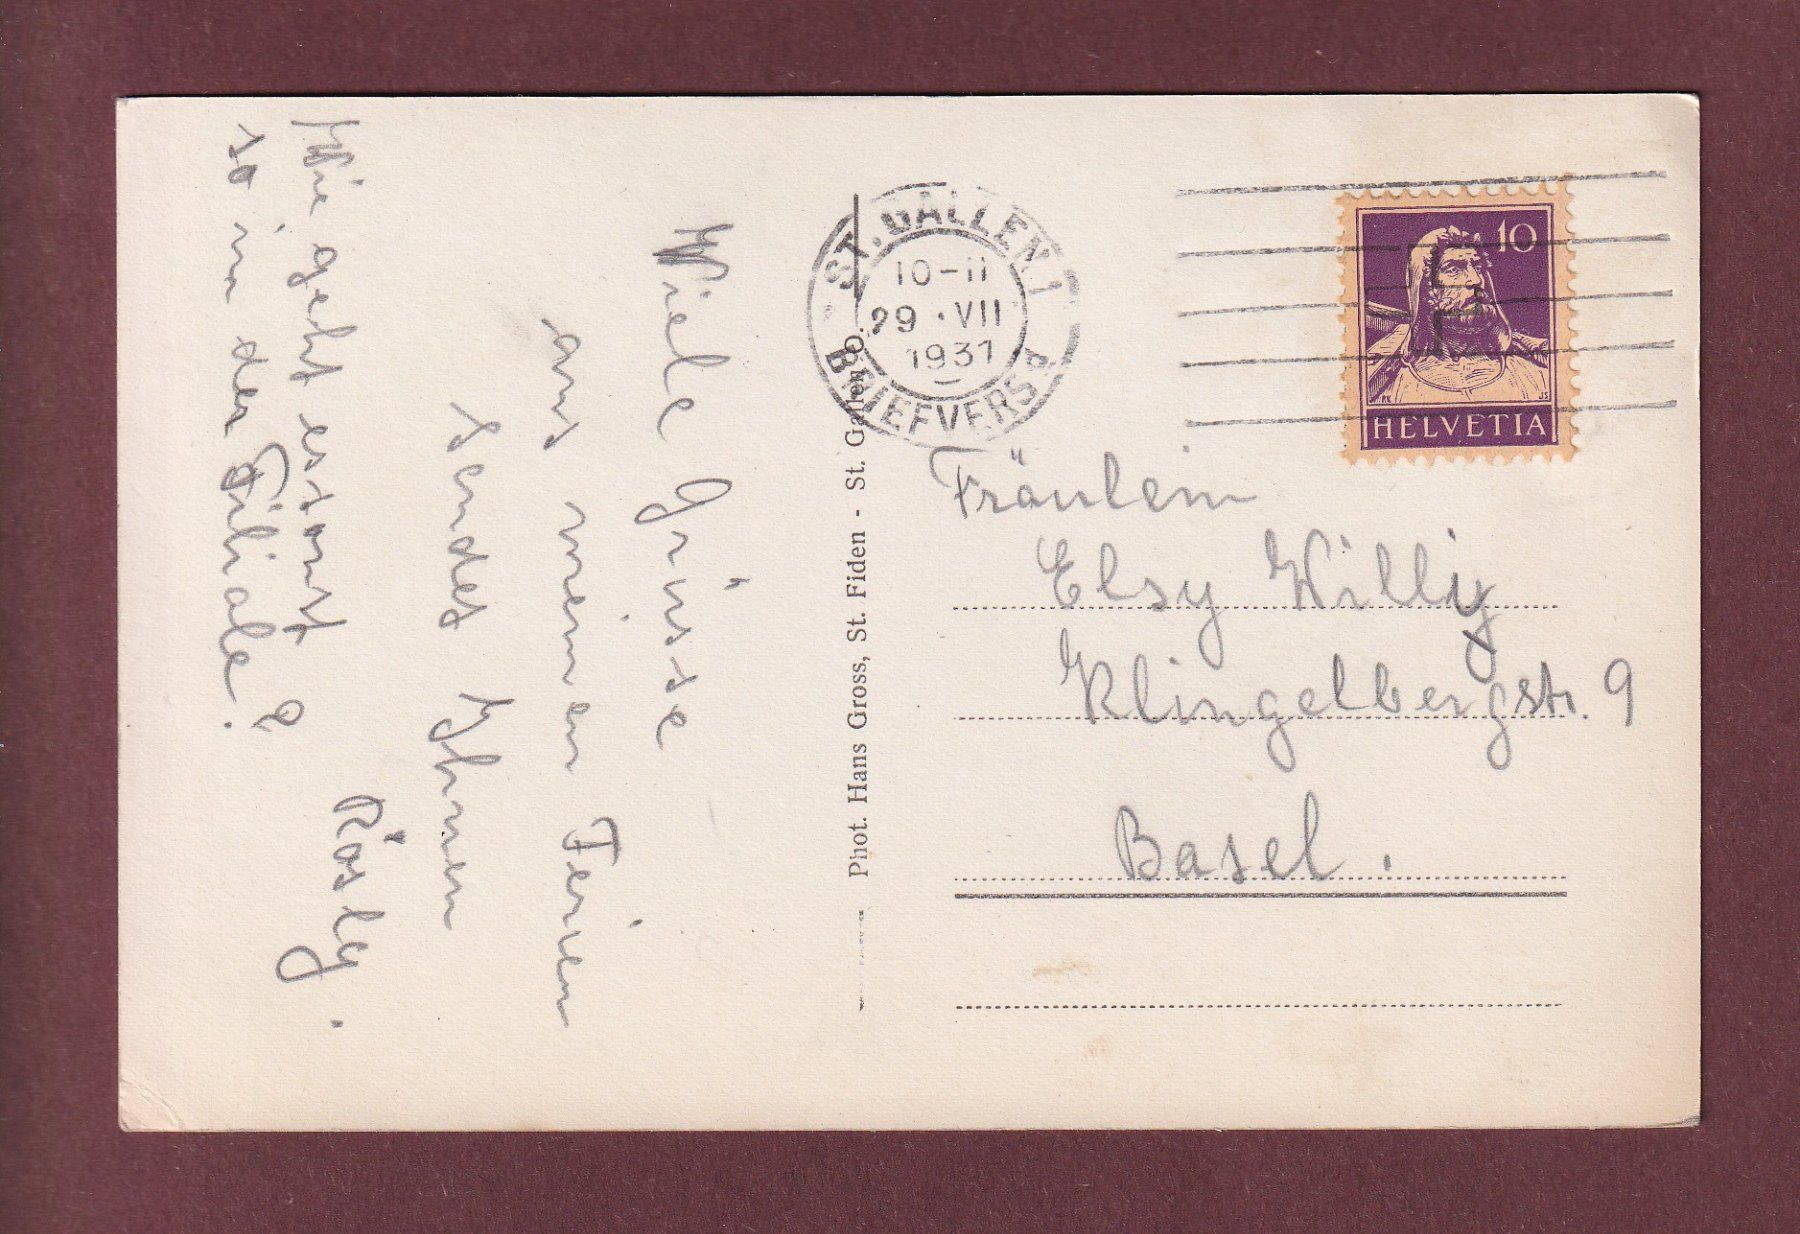 Viele Grüsse
aus meinen Ferien
sendet Ihnen
Rösly.
Wie geht es sonst
so in der Filiale?
Phot. Hans Gross, St. Fiden - St. Gallen O.
ST. GALLEN 1
10-11
29.VII
1931
BRIEFVERSD
10
HELVETIA
Fräulein
Elsy Willy
Klingelbergstr. 9
Basel.